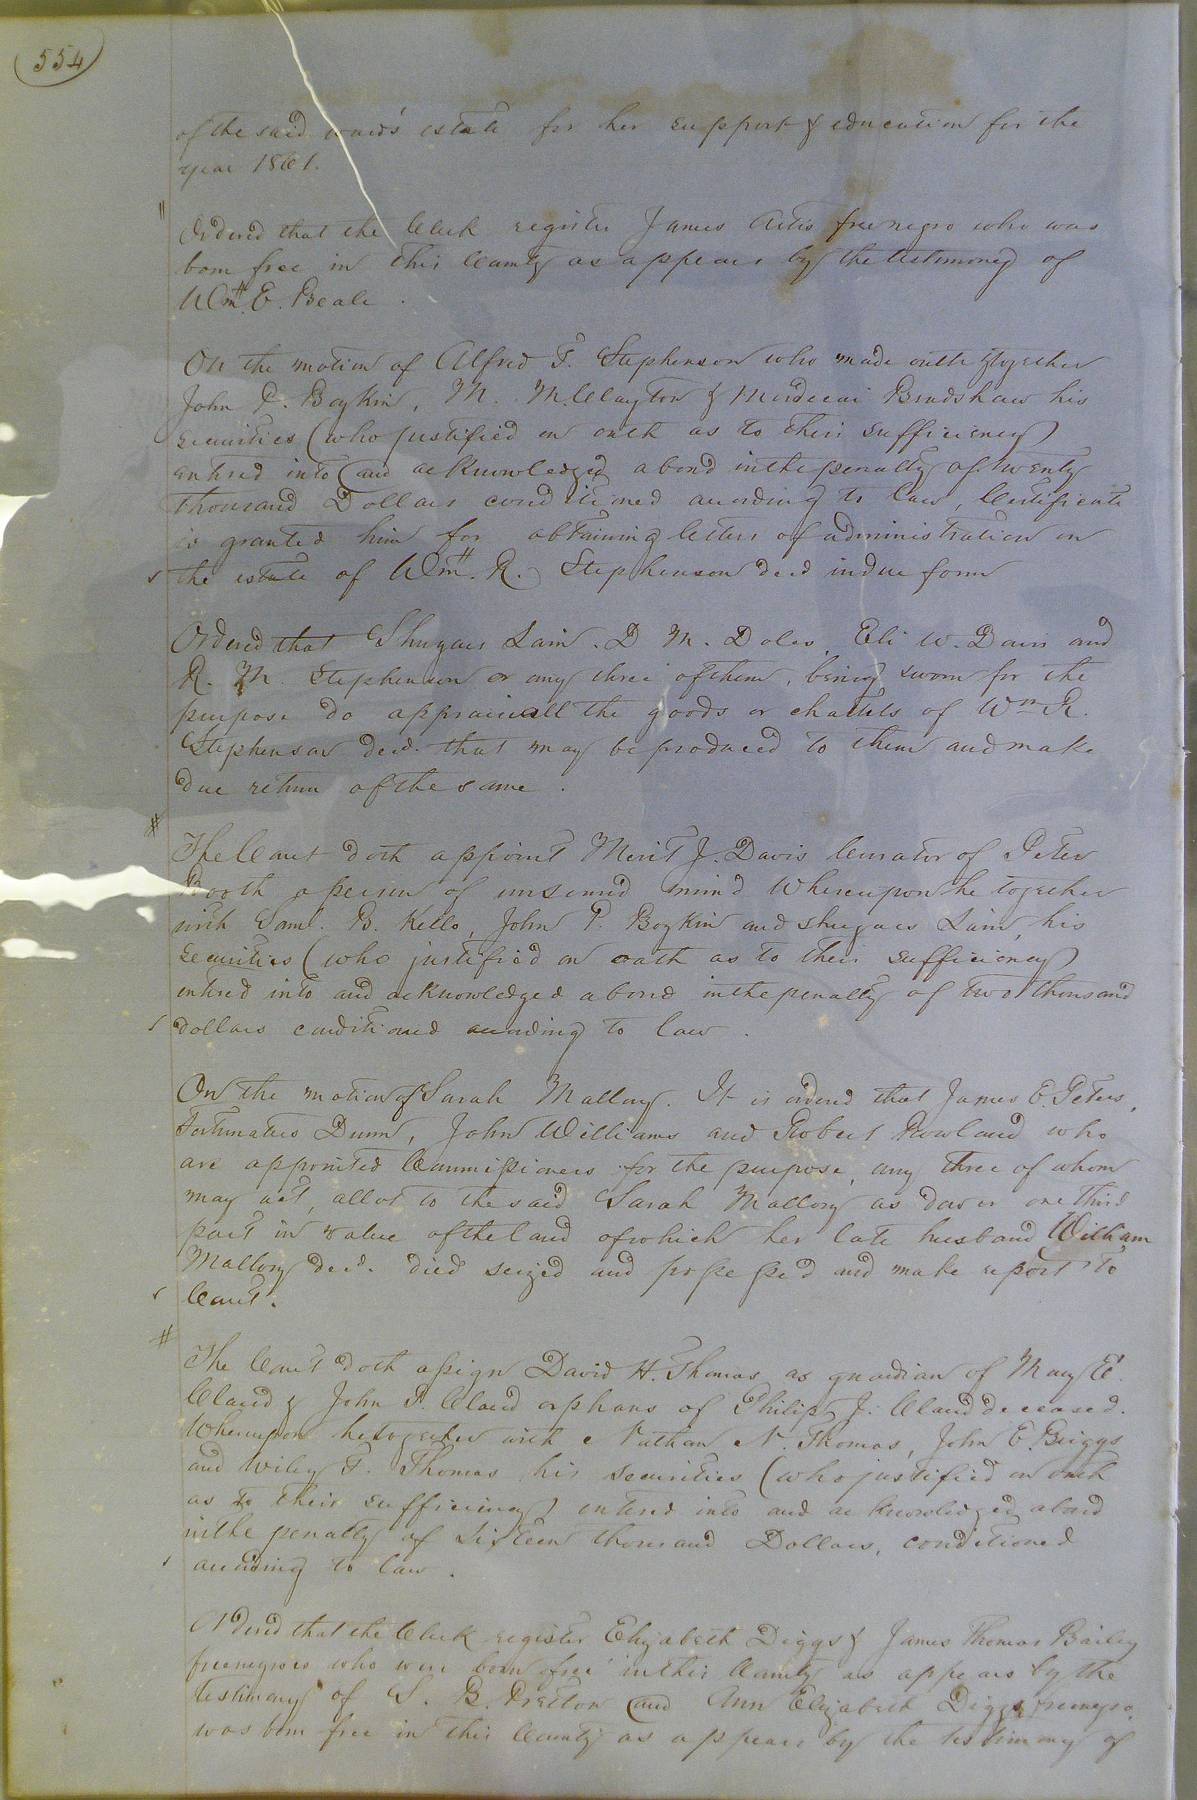 554
of the said ward's estate for her support & education for the
year 1861.
Ordered that the Clerk register James Artis free negro who was
born free in this County as appears by the testimony of
Wm. E. Beale.
On the motion of Alfred F. Stephenson who made oath & together
John P. Boykin, M. McClayton & Mordecai Bradshaw his
securities (who justified on oath as to their sufficiency)
entered into and acknowledged a bond in the penalty of twenty
thousand Dollars conditioned according to law, Certificate
is granted him for obtaining letters of administration on
the estate of Wm. R. Stephenson decd in due form
Ordered that Shugars Lain, D M. Doles, Eli W. Davis and
R. M. Stephenson or any three of them, being sworn for the
purpose do appraise all the goods or chattels of Wm R.
Stephenson decd. that may be produced to them and make
due return of the same.
The Court doth appoint Merit J. Davis Curator of Peter
Booth a person of unsound mind Whereupon he together
with Saml. B. Kello, John P. Boykin and Shugars Lain, his
securities (who justified on oath as to their sufficiency)
entered into and acknowledged a bond in the penalty of two thousand
dollars conditioned according to law.
On the motion of Sarah Mallory. It is ordered that James E. Peters,
Fortunatus Dunn, John Williams and Robert Rowland who
are appointed Commissioners for the purpose, any three of whom
may act, allot to the said Sarah Mallory as dower one third
part in value of the land of which her late husband William
Mallory decd. died seized and possessed and make report to
Court.
The Court doth assign David H. Thomas as guardian of Mary E.
Claud & John P. Claud orphans of Philip J. Claud deceased.
Whereupon he together with Nathan N. Thomas, John E. Briggs
and Wiley F. Thomas his securities (who justified on oath
as to their sufficiency) entered into and acknowledged a bond
in the penalty of sixteen thousand Dollars, conditioned
according to law.
Ordered that the Clerk register Elizabeth Diggs & James Thomas Bailey
free negroes who were born free in this County as appears by the
testimony of S. B. Pretlow and Ann Elizabeth Diggs free negro,
was born free in this County as appears by the testimony of